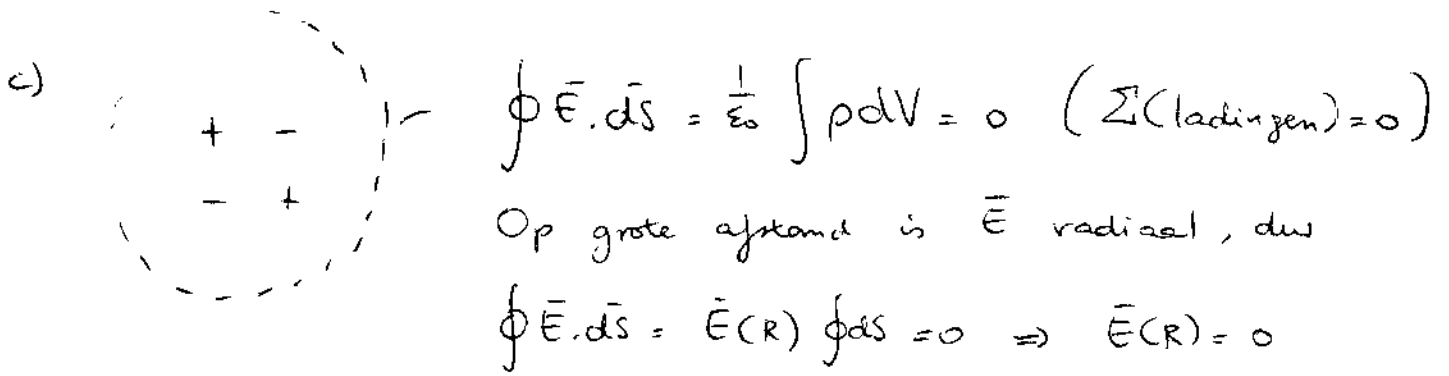 c)
+ -
- +
∮ Ē . d̄S = 1/ε₀ ∫ ρdV = 0 (Σ(ladingen) = 0)
Op grote afstand is Ē radiaal, dus
∮ Ē . d̄S = Ē(R) ∮dS = 0 ⇒ Ē(R) = 0